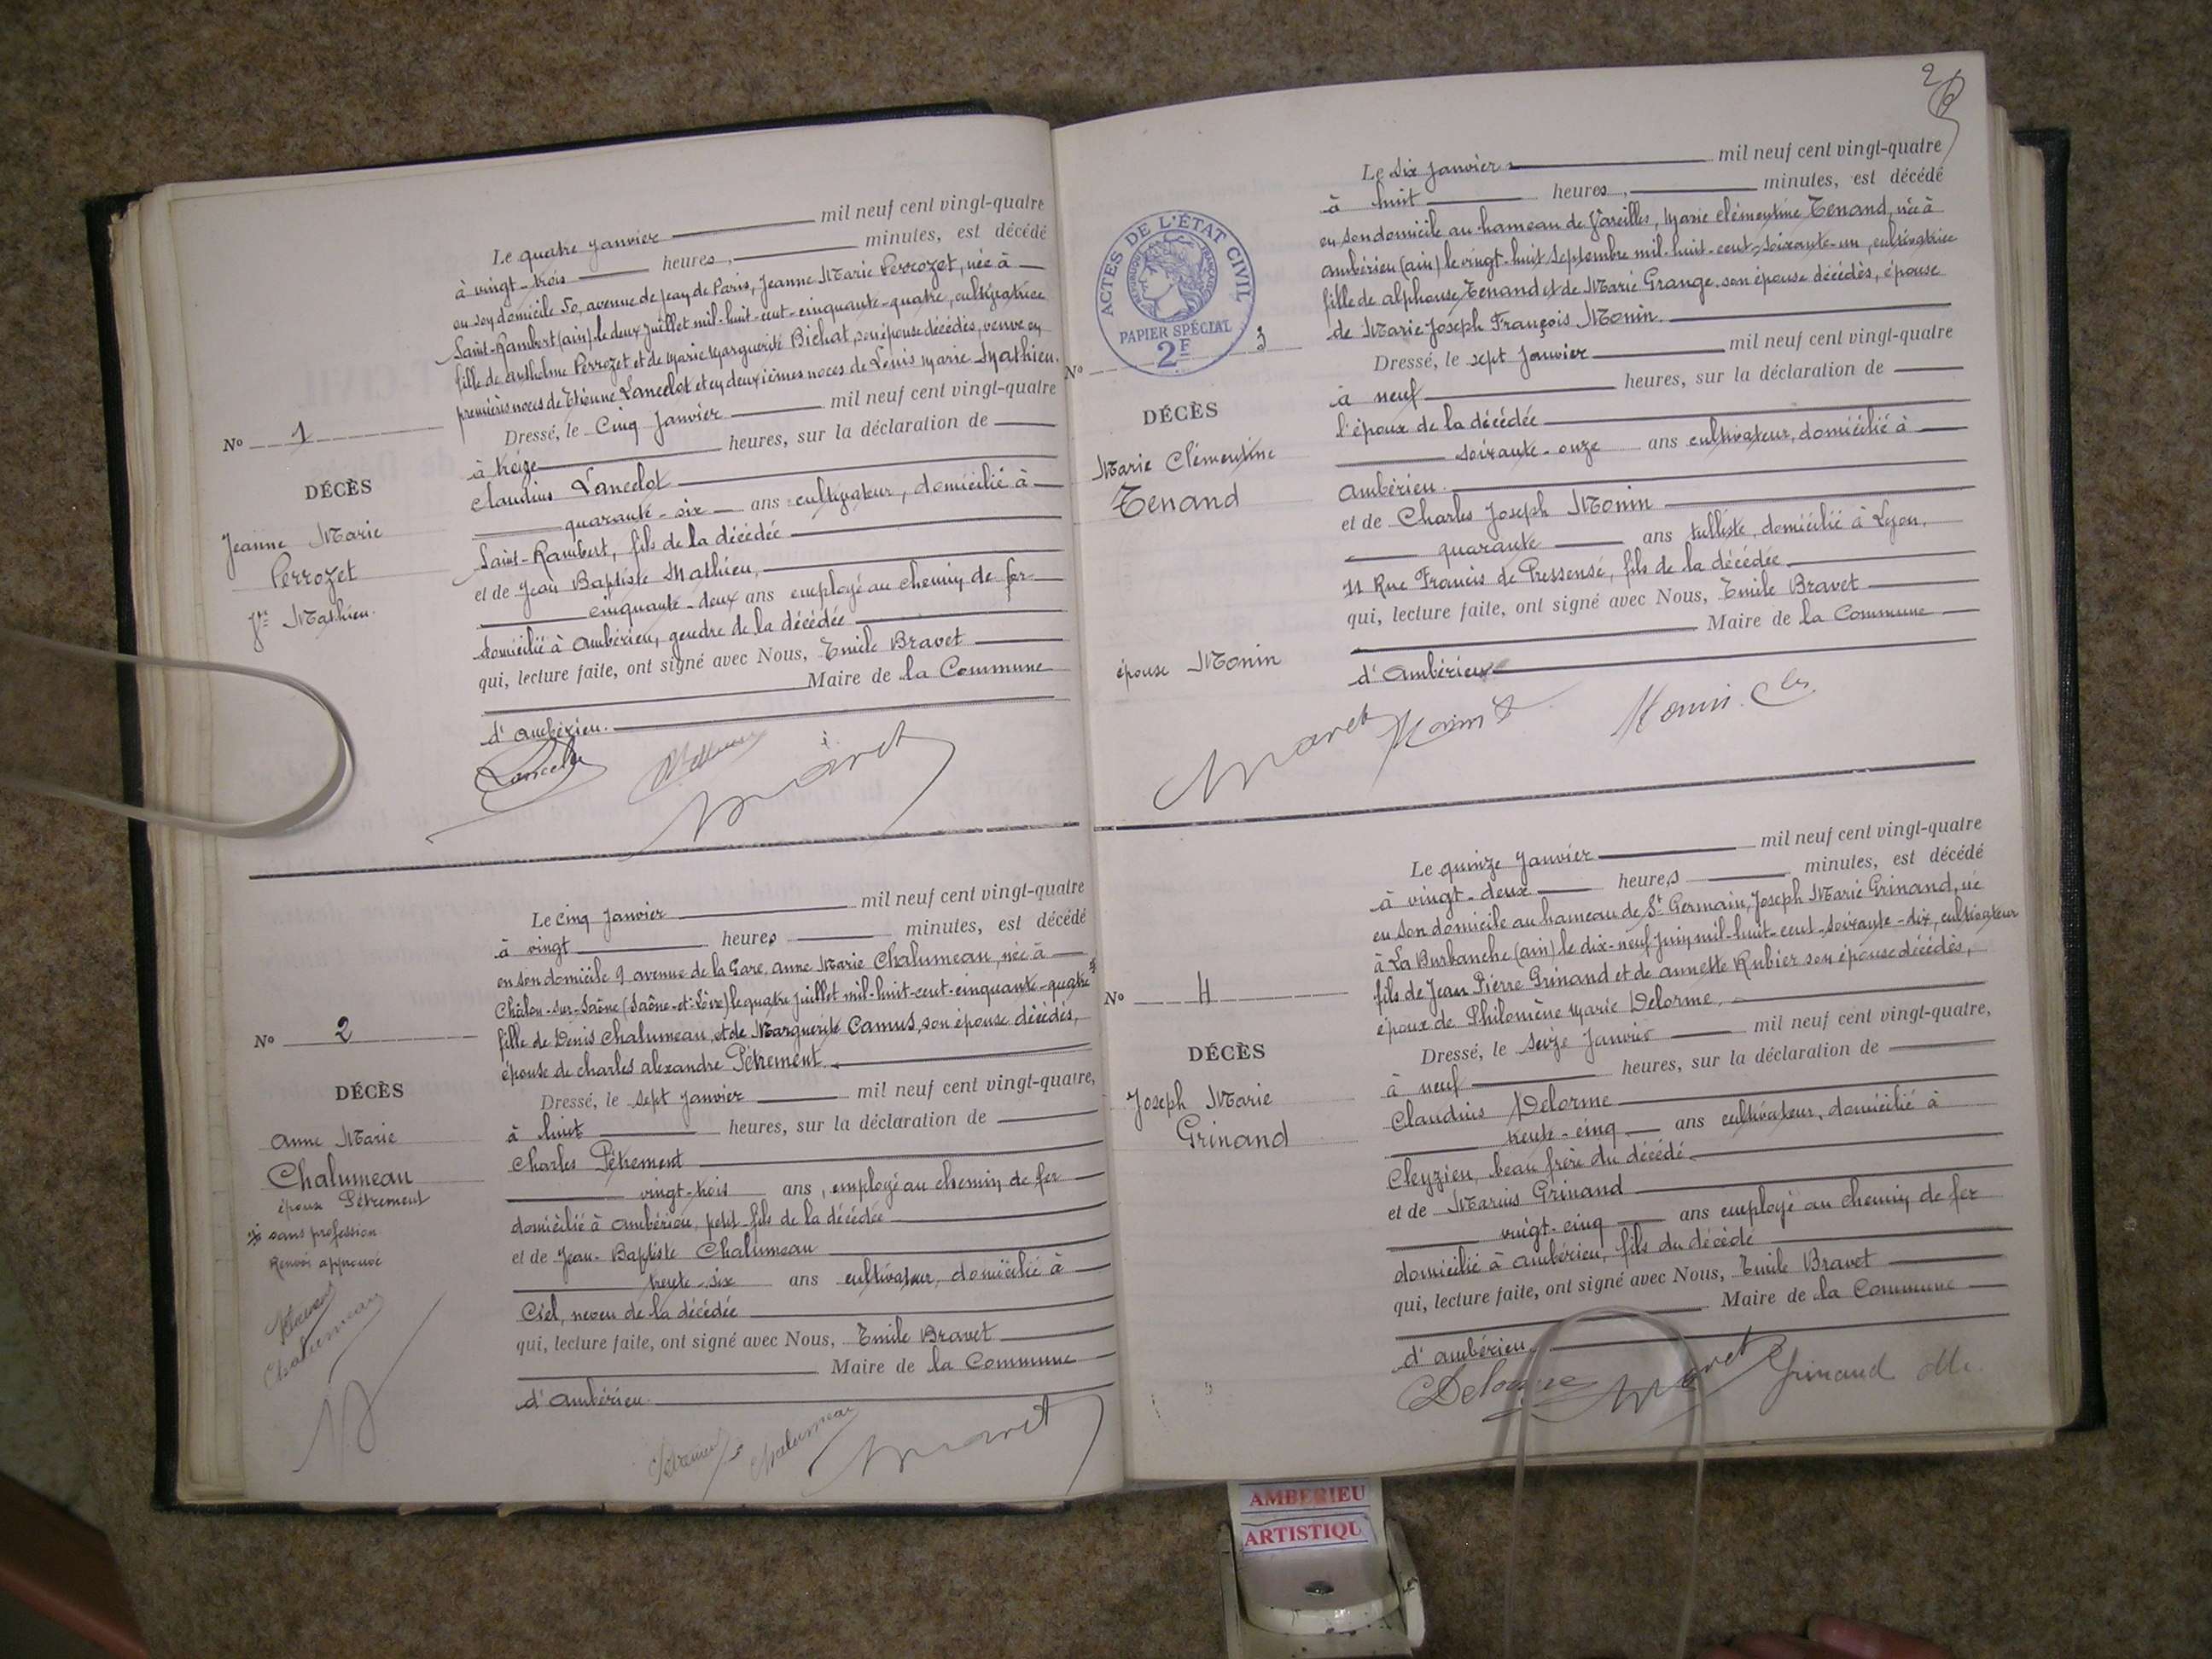 Le quatre Janvier mil neuf cent vingt-quatre
à vingt-trois heures, minutes, est décédé
en son domicile 50, avenue de Jean de Paris, Jeanne Marie Perrozet, née à
Saint-Rambert (ain) le deux Juillet mil-huit-cent-cinquante-quatre, cultivatrice
fille de anthelme Perrozet et de Marie Marguerite Bichat, son épouse décédés, veuve en
premières noces de Etienne Lancelot et en deuxièmes noces de Louis Marie Mathieu.
Dressé, le Cinq Janvier mil neuf cent vingt-quatre
à treize heures, sur la déclaration de
Claudius Lancelot
quarante-six ans cultivateur, domicilié à
Saint-Rambert, fils de la décédée
et de Jean Baptiste Mathieu,
cinquante-deux ans employé au chemin de fer
domicilié à Ambérieu, gendre de la décédée
qui, lecture faite, ont signé avec Nous, Emile Bravet
Maire de la Commune
d'ambérieu.
No 1
DÉCÈS
Jeanne Marie
Perrozet
Vve Mathieu.
Lancelot
Bravet
Le cinq Janvier mil neuf cent vingt-quatre
à vingt heures minutes, est décédé
en son domicile 9 avenue de la Gare, anne Marie Chalumeau, née à
Châlon-sur-Saône (Saône-et-Loire) le quatre Juillet mil-huit-cent-cinquante-quatre
fille de Denis Chalumeau, et de Marguerite Camus, son épouse décédés,
épouse de charles alexandre Pétrement.
Dressé, le sept Janvier mil neuf cent vingt-quatre,
à huit heures, sur la déclaration de
Charles Pétrement
vingt-trois ans, employé au chemin de fer
domicilié à ambérieu, petit-fils de la décédée
et de Jean-Baptiste Chalumeau
trente-six ans cultivateur, domicilié à
Ciel, neveu de la décédée
qui, lecture faite, ont signé avec Nous, Emile Bravet
Maire de la Commune
d'ambérieu.
No 2
DÉCÈS
anne Marie
Chalumeau
épouse Pétrement
sans profession
Renvoi approuvé
Pétrement
Chalumeau
Pétrement Chalumeau Bravet
2
Le six Janvier mil neuf cent vingt-quatre
à huit heures, minutes, est décédé
en son domicile au hameau de Vareilles, Marie Clémentine Tenand, née à
ambérieu (ain) le vingt-huit Septembre mil-huit-cent-soixante-un, cultivatrice
fille de alphonse Tenand et de Marie Grange son épouse décédés, épouse
de Marie Joseph François Monin.
Dressé, le sept Janvier mil neuf cent vingt-quatre
à neuf heures, sur la déclaration de
l'époux de la décédée
soixante-onze ans cultivateur, domicilié à
ambérieu.
et de Charles Joseph Monin
quarante ans tulliste, domicilié à Lyon,
11 Rue Francis de Pressensé, fils de la décédée
qui, lecture faite, ont signé avec Nous, Emile Bravet
Maire de la Commune
d'Ambérieu
ACTES DE L'ÉTAT CIVIL
RÉPUBLIQUE FRANÇAISE
PAPIER SPÉCIAL
2F
No 3
DÉCÈS
Marie Clémentine
Tenand
épouse Monin
Bravet Monin Monin Cles
Le quinze Janvier mil neuf cent vingt-quatre
à vingt-deux heures minutes, est décédé
en son domicile au hameau de St Germain, Joseph Marie Grinand, né
à La Burbanche (ain) le dix-neuf Juin mil-huit-cent-soixante-dix, cultivateur
fils de Jean Pierre Grinand et de annette Rubier son épouse décédés,
époux de Philomène Marie Delorme,
Dressé, le seize Janvier mil neuf cent vingt-quatre,
à neuf heures, sur la déclaration de
Claudius Delorme
trente-cinq ans cultivateur, domicilié à
Cleyzieu, beau frère du décédé
et de Marius Grinand
vingt-cinq ans employé au chemin de fer
domicilié à ambérieu, fils du décédé
qui, lecture faite, ont signé avec Nous, Emile Bravet
Maire de la Commune
d'ambérieu.
No 4
DÉCÈS
Joseph Marie
Grinand
Delorme Bravet Grinand
AMBERIEU
ARTISTIQU